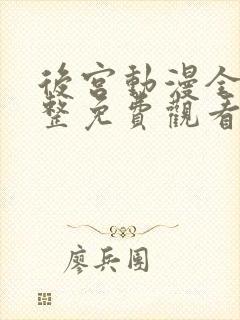 後宮動漫全
整免費觀看
廖兵團